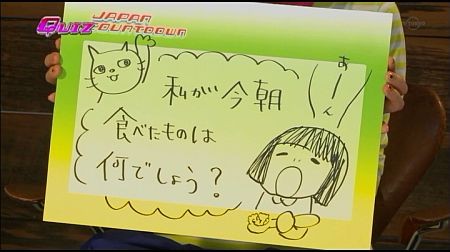 JAPAN
QUIZ COUNTDOWN
私が今朝
食べたものは
何でしょう?
あーん